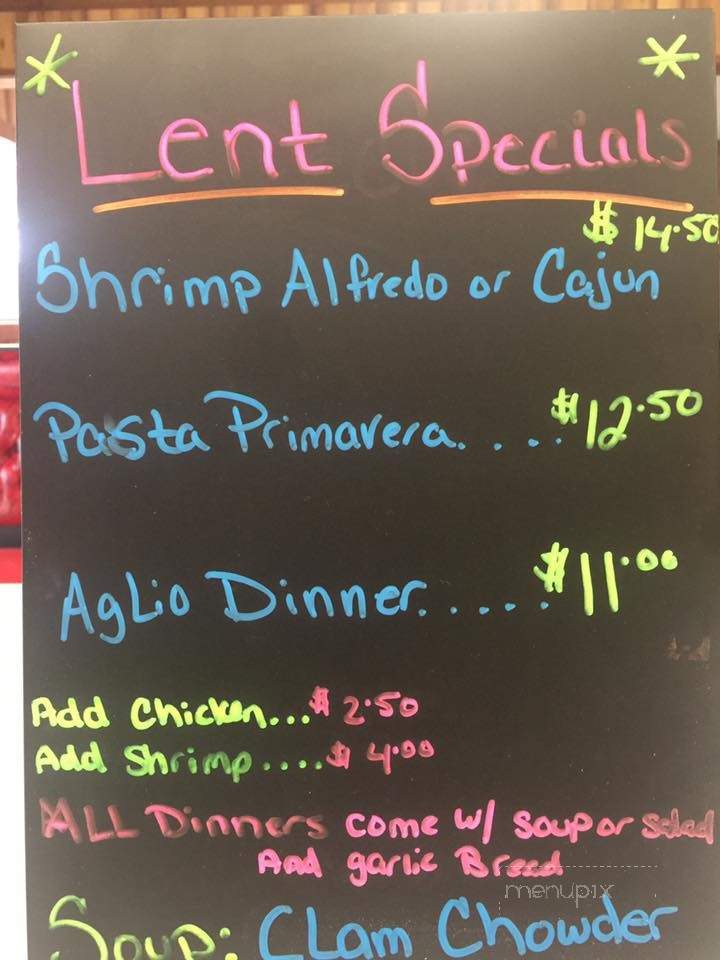 * Lent Specials *
$14.50
Shrimp Alfredo or Cajun
Pasta Primavera.... $12.50
Aglio Dinner..... $11.00
Add Chicken...$2.50
Add Shrimp....$4.00
ALL Dinners come w/ soup or salad
And garlic Bread
menupix
Soup: Clam Chowder